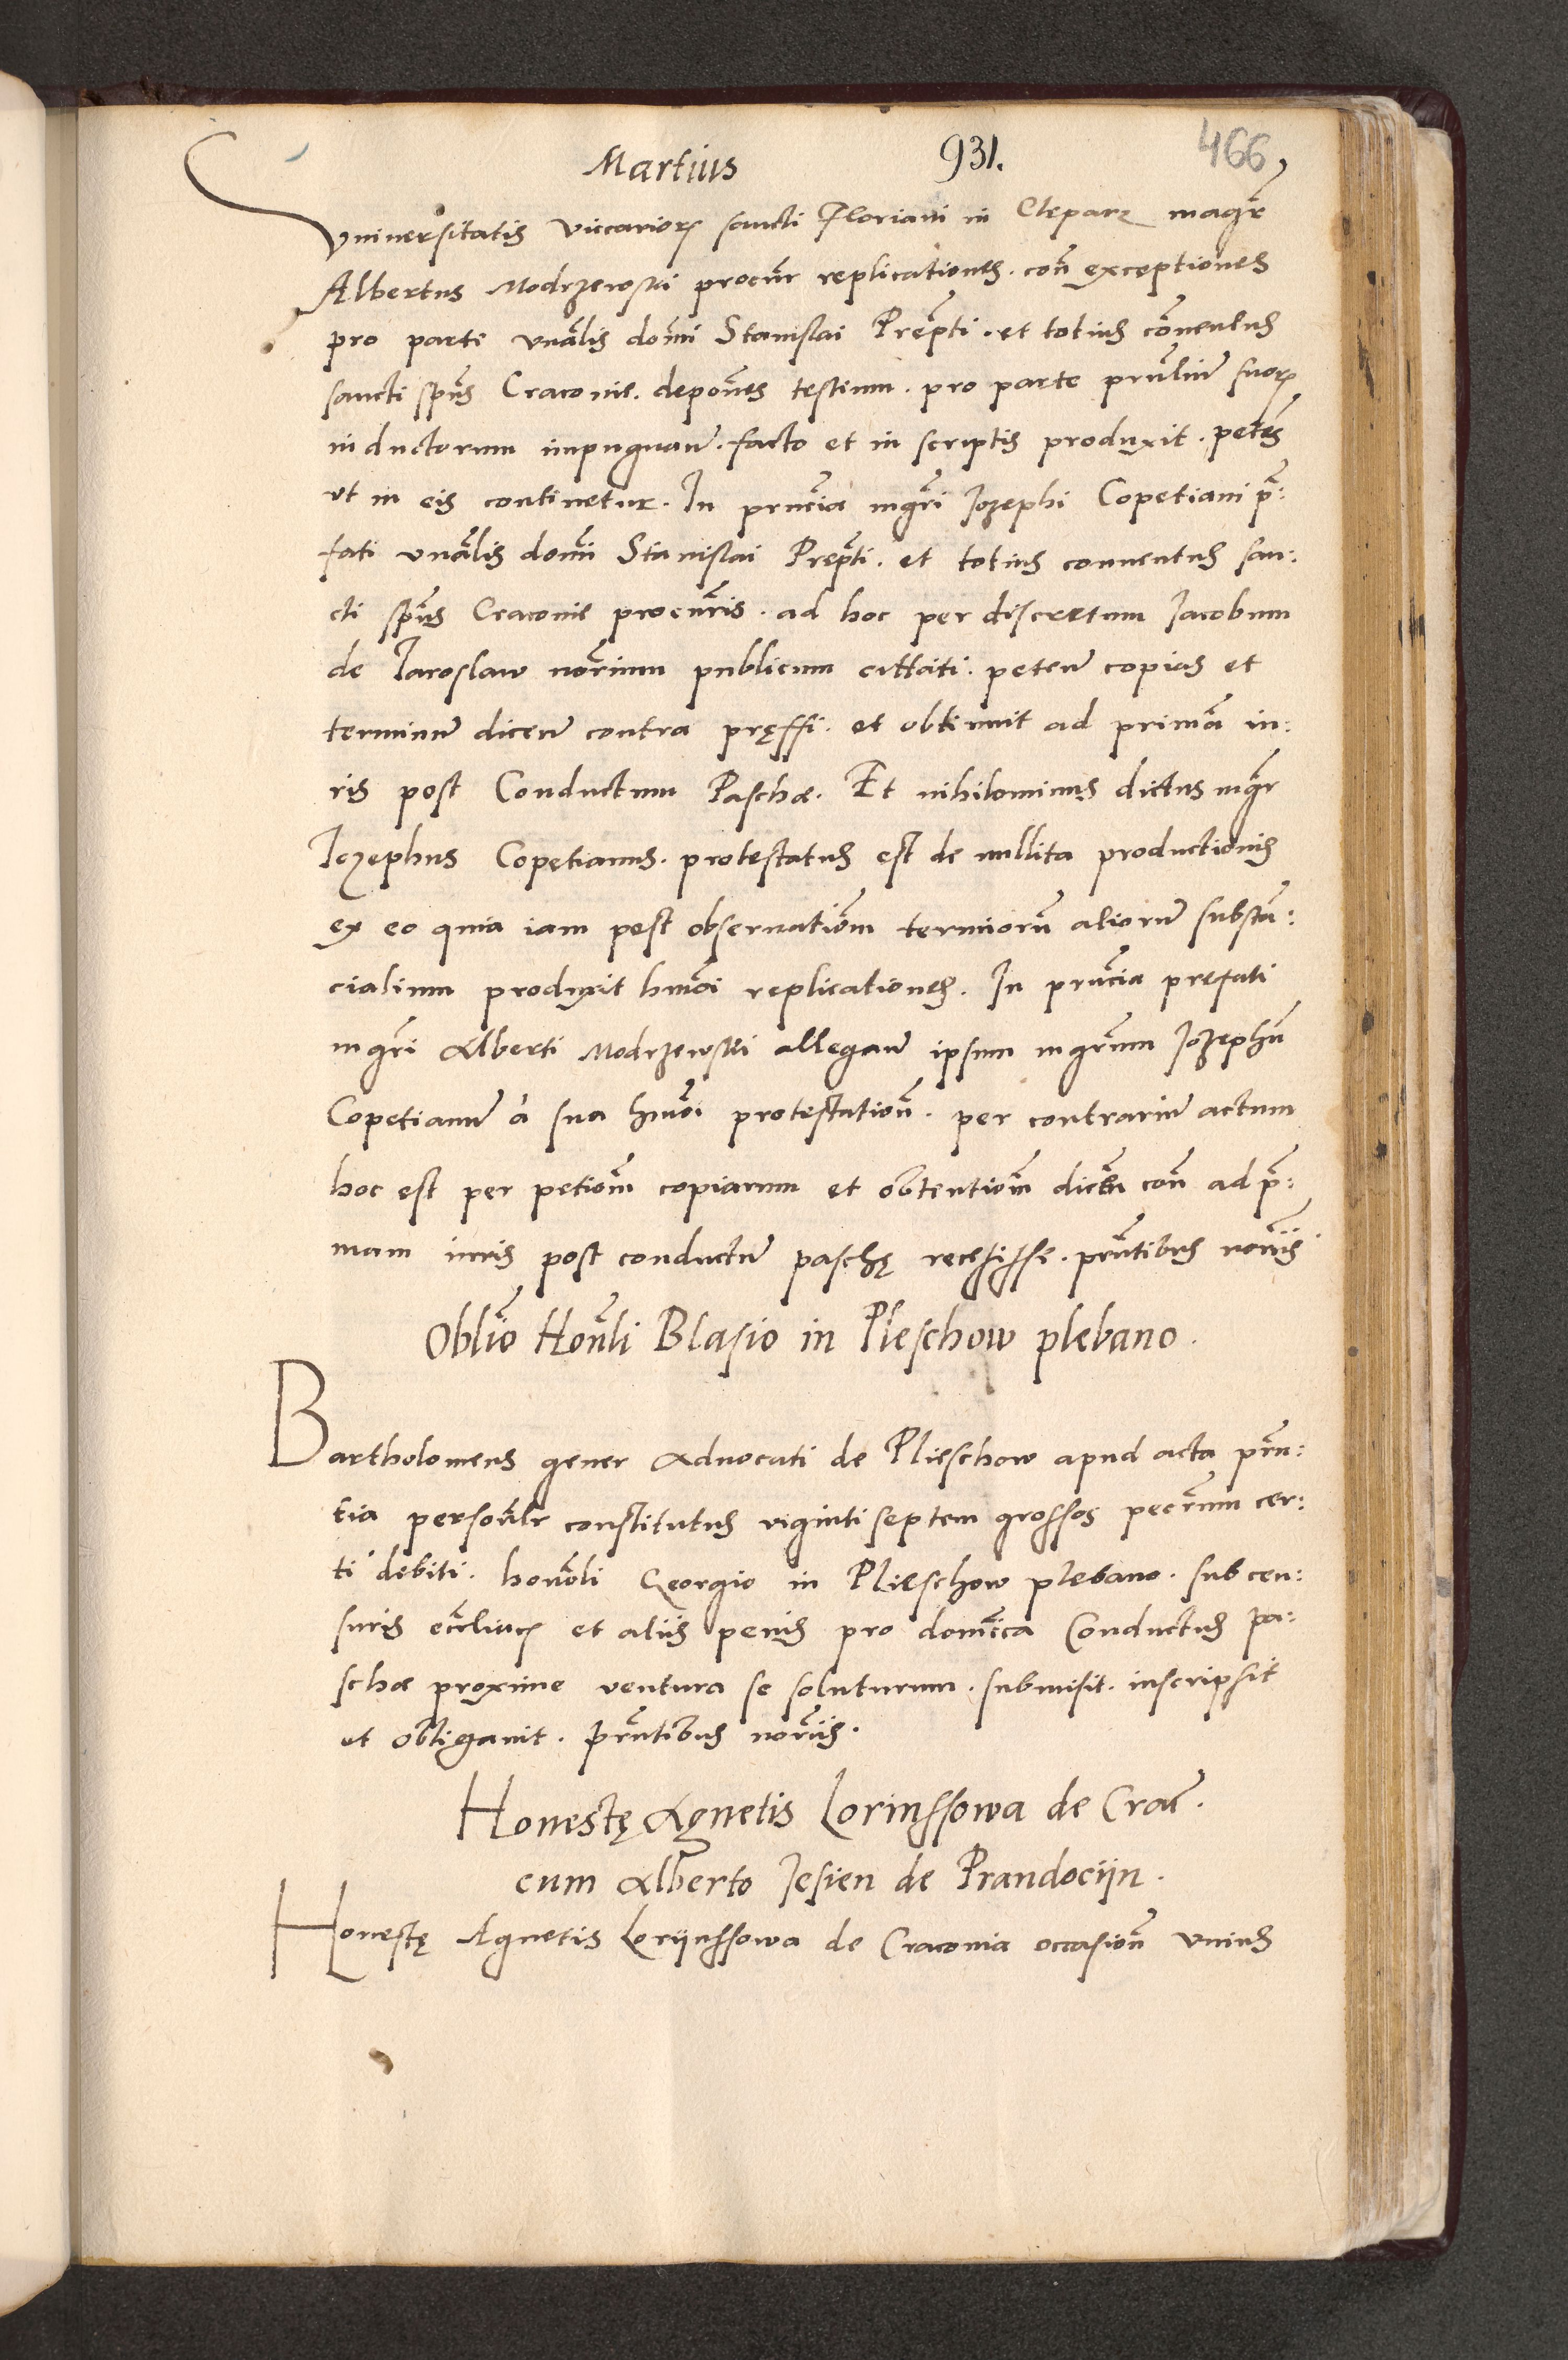 Martius 931. 466
Universitatis viccarior sancti Floriani in Clepar magr̃
Albertus Modrzewski procur̃ replicationes. con̄ exceptiones
pro parte vnãlis domĩ Stanislai Prep̃ti. et totius cõventus
sancti sp̃us Cracoviẽ. depoñes testium. pro parte prñlium suor
inductorum impugnan̄. facto et in scriptis produxit. peteñs
vt in eis continetur. In prñcia mgr̃i Jozephi Copetiani p̃:
fati vnãlis domĩ Stanislai Prep̃ti. et totius conventus san:
cti sp̃us Cracovie procur̃is. ad hoc per discretum Jacobum
de Jaroslaw nor̃ium publicum cittati. peten̄ copias et
terminum̄ dicen̄ contra pręssi. et obtinuit ad primã iu:
ris post Conductum Paschæ. Et nihilominus dictus mgr̃
Jozephus Copetianus. protestatus est de nullita productionis
ex eo quia iam post observatiom̃ terminorũ aliorum̄ substã:
cialium produxit hmõi replicationes. In prñcia prefati
mgr̃i Alberti Modrzewski allegan̄ ipsum mgr̃um Jozephũ
Copetianum̄ à sua hmõi protestation̄. per contrarium̄ actum
hoc est per petiom̃ copiarum et obtentiom̃ dicen̄ con̄ ad p̃:
mam iuris post conductum̄ paschę recessisse. prñtibus nor̃iis
Oblĩo Hon̄li Blasio in Pleschow plebano.
Bartholomeus gener Advocati de Plieschow apud acta prñ:
tia personlr̃ constitutus viginti septem grossos pecr̃um cer:
ti debiti. honõli Georgio in Plieschow plebano. sub cen:
suris ecc̃liacis et aliis penis pro domĩca Conductus Pa:
schæ proxime ventura se soluturum. submisit. inscripsit
et obligavit. Prñtibus nor̃iis.
Honestę Agnetis Lorinssowa de Crac̃.
cum Alberto Jesien de Prandocijn.
Honestę Agnetis Lorijnssowa de Cracovia occasion̄ vnius